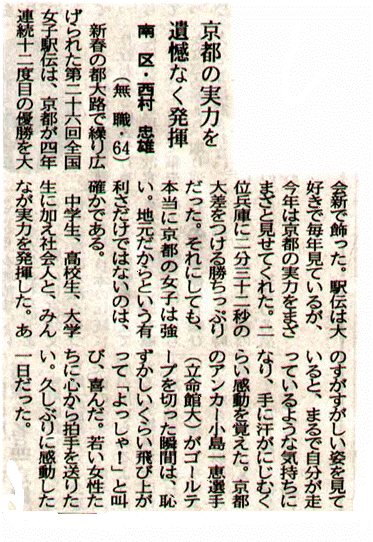 京都の実力を
遺憾なく発揮
南区・西村 忠雄
（無職・64）
新春の都大路で繰り広
げられた第二十六回全国
女子駅伝は、京都が四年
連続十二度目の優勝を大
会新で飾った。駅伝は大
好きで毎年見ているが、
今年は京都の実力をまざ
まざと見せてくれた。二
位兵庫に二分三十二秒の
大差をつける勝ちっぷり
だった。それにしても、
本当に京都の女子は強
い。地元だからという有
利さだけではないのは、
確かである。
中学生、高校生、大学
生に加え社会人と、みん
なが実力を発揮した。あ
のすがすがしい姿を見て
いると、まるで自分が走
っているような気持ちに
なり、手に汗がにじむく
らい感動を覚えた。京都
のアンカー小島一恵選手
（立命館大）がゴールテ
ープを切った瞬間は、恥
ずかしいくらい飛び上が
って「よっしゃ！」と叫
び、喜んだ。若い女性た
ちに心から拍手を送りた
い。久しぶりに感動した
一日だった。